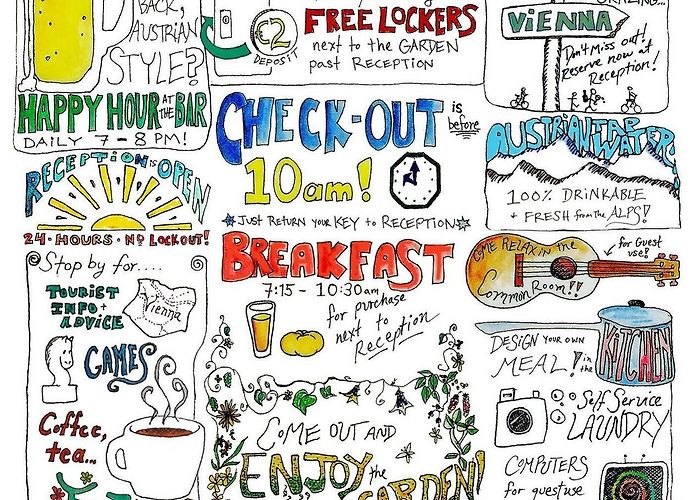 BACK,
AUSTRIAN
STYLE?
HAPPY HOUR AT THE BAR
DAILY 7-8 PM!
€2
DEPOSIT
FREE LOCKERS
next to the GARDEN
past RECEPTION
VIENNA
Don't Miss out!
Reserve now at
Reception!
CHECK-OUT is before
10am!
★JUST RETURN YOUR KEY to RECEPTION★
AUSTRIAN TAP
WATER
100% DRINKABLE
+ FRESH from the ALPS!
RECEPTION is OPEN
24·HOURS·No LOCKOUT!
BREAKFAST
7:15 - 10:30am
for purchase
next to
Reception
COME RELAX in the
Common Room!!
for Guest
use!
Stop by for....
TOURIST
INFO +
ADVICE
Vienna
GAMES
Coffee,
tea...
DESIGN YOUR OWN
MEAL! in the
KITCHEN
Self Service
LAUNDRY
COMPUTERS
for guestuse
COME OUT AND
ENJOY the
GARDEN!